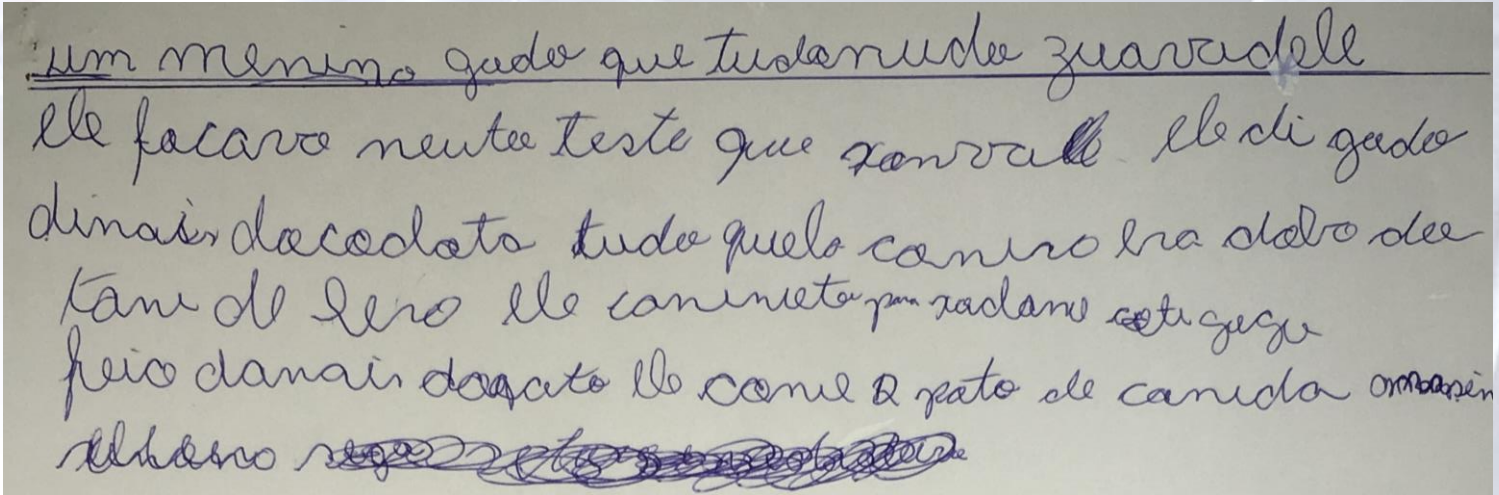 um menino gudo que tudonudo zuavadele
ele facava neuto teste que xonva ele di gudo
dinais dacodata tudo quelo comiro era dobo do
tami de lero ele comineto para xadano gegu
feio danais dagato ele comi 2 pato de canida